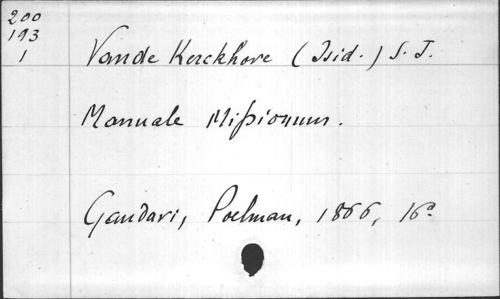 200
193
1
Vande Kerckhove (Isid.) S. J.
Manuale Missionum.
Gandavi, Poelman, 1866, 16°